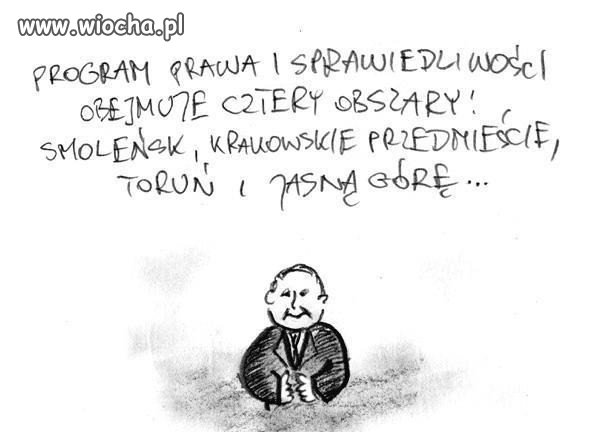 www.wiocha.pl
PROGRAM PRAWA I SPRAWIEDLIWOŚCI
OBEJMUJE CZTERY OBSZARY!
SMOLEŃSK, KRAKOWSKIE PRZEDMIEŚCIE,
TORUŃ I JASNĄ GÓRĘ...